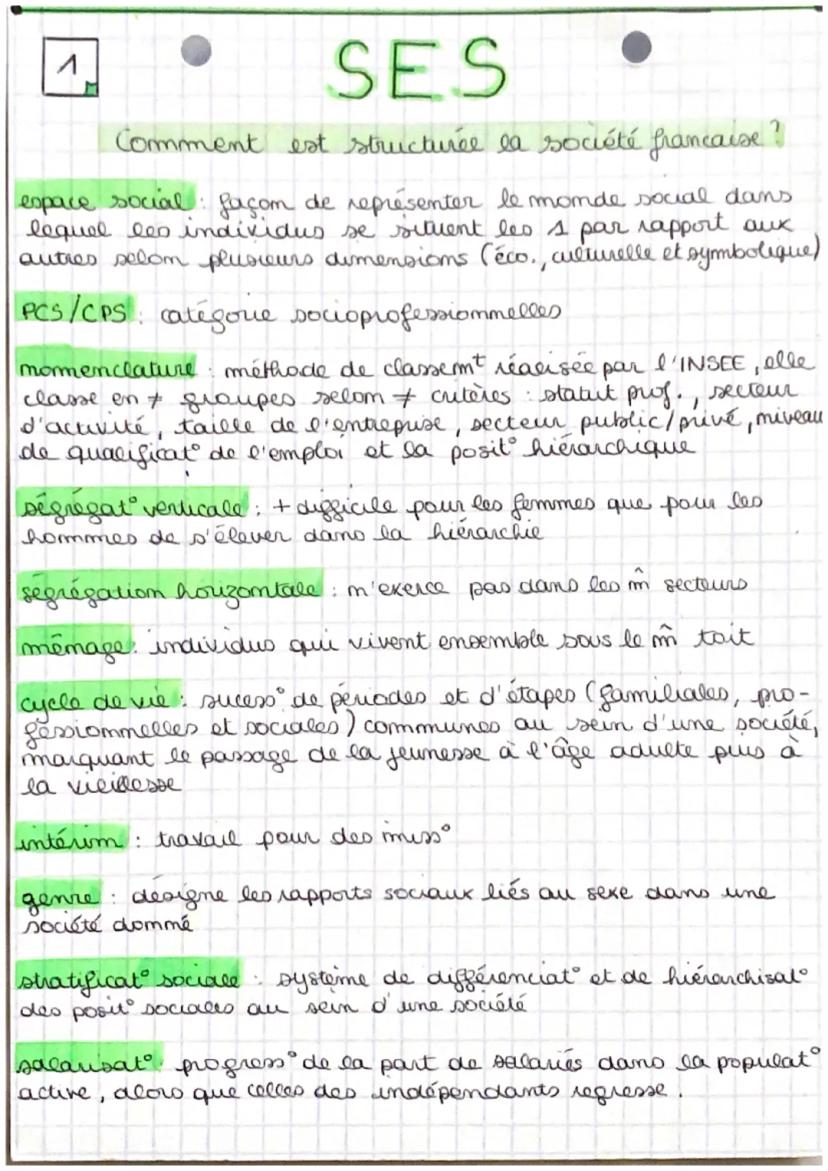 1
SES
Comment est structurée la société francaise ?
espace social : façon de représenter le monde social dans
lequel les individus se situent les 1 par rapport aux
autres selon plusieurs dimensions (éco., culturelle et symbolique)
PCS/CPS : catégorie socioprofessionnelles
nomenclature : méthode de classemt réalisée par l'INSEE, elle
classe en ≠ groupes selon ≠ critères : statut prof., secteur
d'activité, taille de l'entreprise, secteur public/privé, niveau
de qualificat° de l'emploi et la posit° hiérarchique
ségrégat° verticale : + difficile pour les femmes que pour les
hommes de s'élever dans la hiérarchie
ségrégation horizontale : n'exerce pas dans les m̂ secteurs
ménage : individus qui vivent ensemble sous le m̂ toit
cycle de vie : success° de périodes et d'étapes (familiales, pro-
fessionnelles et sociales) communes au sein d'une société,
marquant le passage de la jeunesse à l'âge adulte puis à
la vieillesse
intérim : travail pour des miss°
genre : désigne les rapports sociaux liés au sexe dans une
société donné
stratificat° sociale : système de différenciat° et de hiérarchisat°
des posit° sociales au sein d'une société
salarisat° : progress° de la part de salariés dans la populat°
active, alors que celles des indépendants regresse.